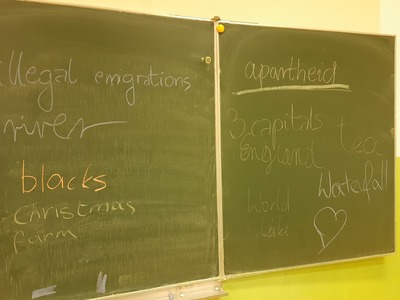 illegal emigrations
river
blacks
christmas
farm
apartheid
3 capitals
england
tea
Waterfall
World